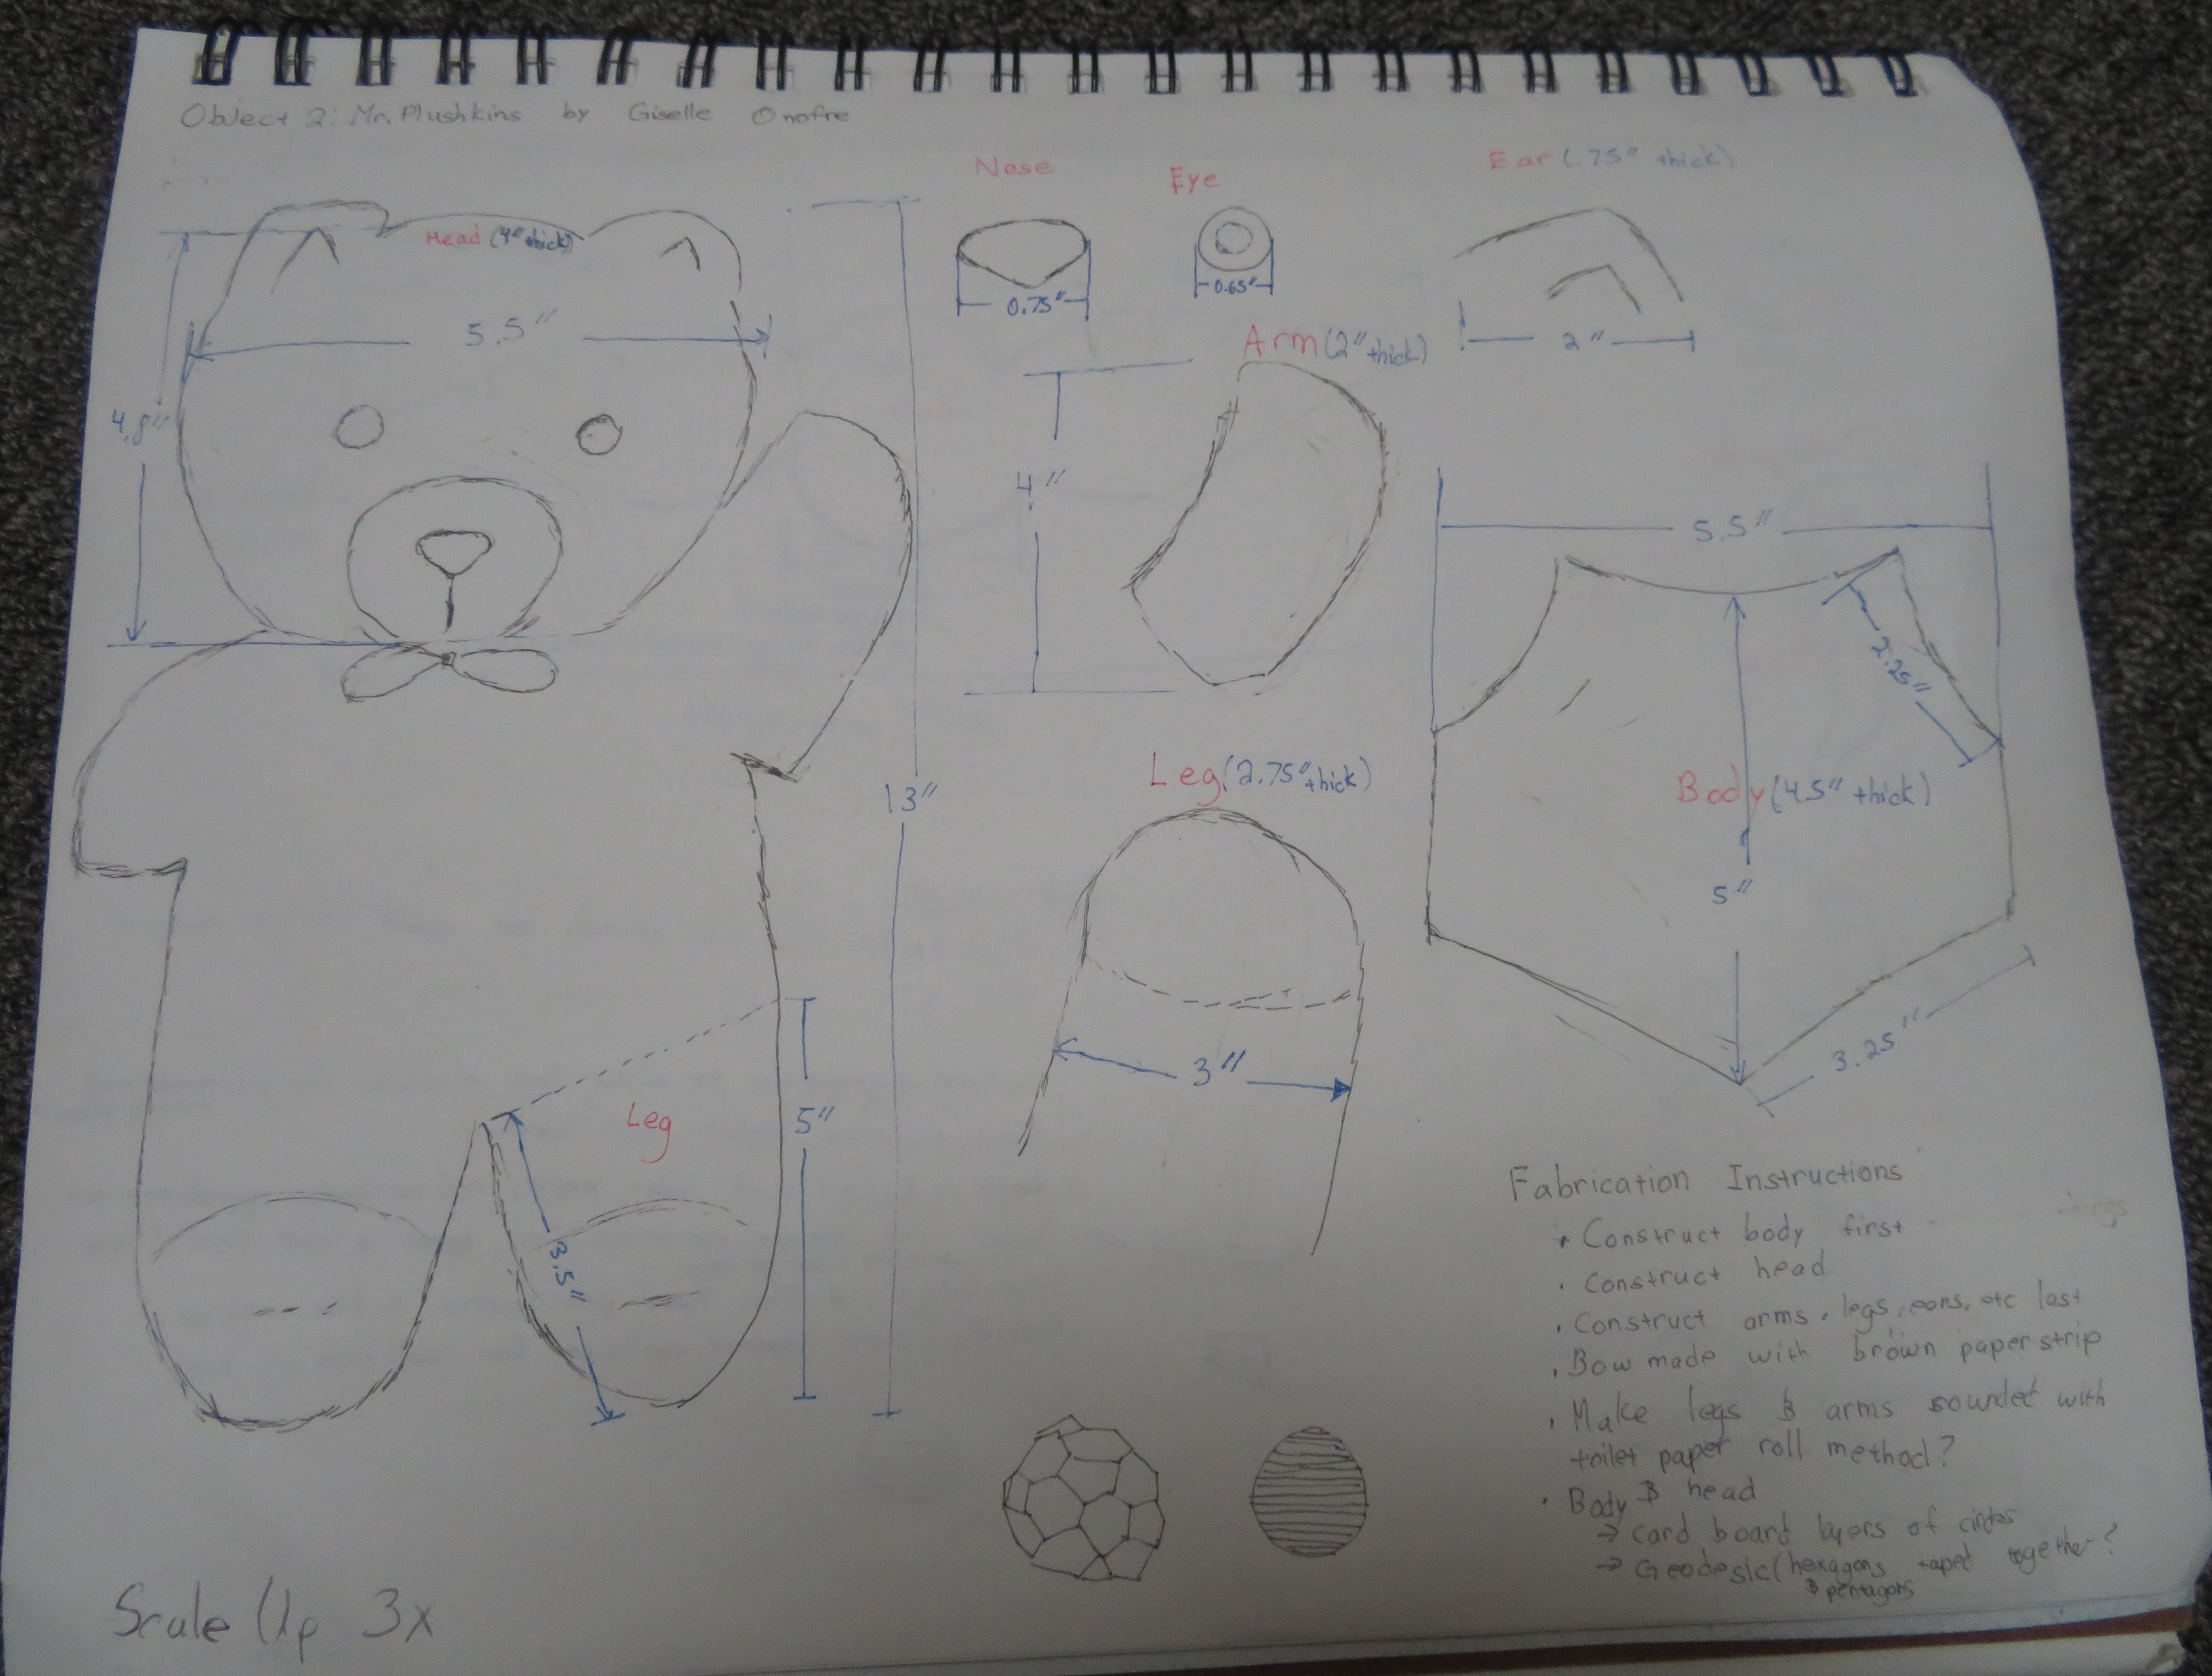 Object 2: Mr. Plushkins by Giselle Onofre
Nose
Eye
Ear (.75" thick)
Head (4" thick)
5.5"
4.8"
0.75"
0.65"
2"
Arm (2" thick)
4"
5.5"
2.25"
13"
Leg (2.75" thick)
Body (4.5" thick)
5"
3"
3.25"
Leg
5"
3.5"
Fabrication Instructions
· Construct body first
· Construct head
· Construct arms, legs, ears, etc last
· Bow made with brown paper strip
· Make legs & arms rounded with
toilet paper roll method?
· Body & head
→ Card board layers of circles
→ Geodesic (hexagons taped together?
& pentagons
Scale Up 3x